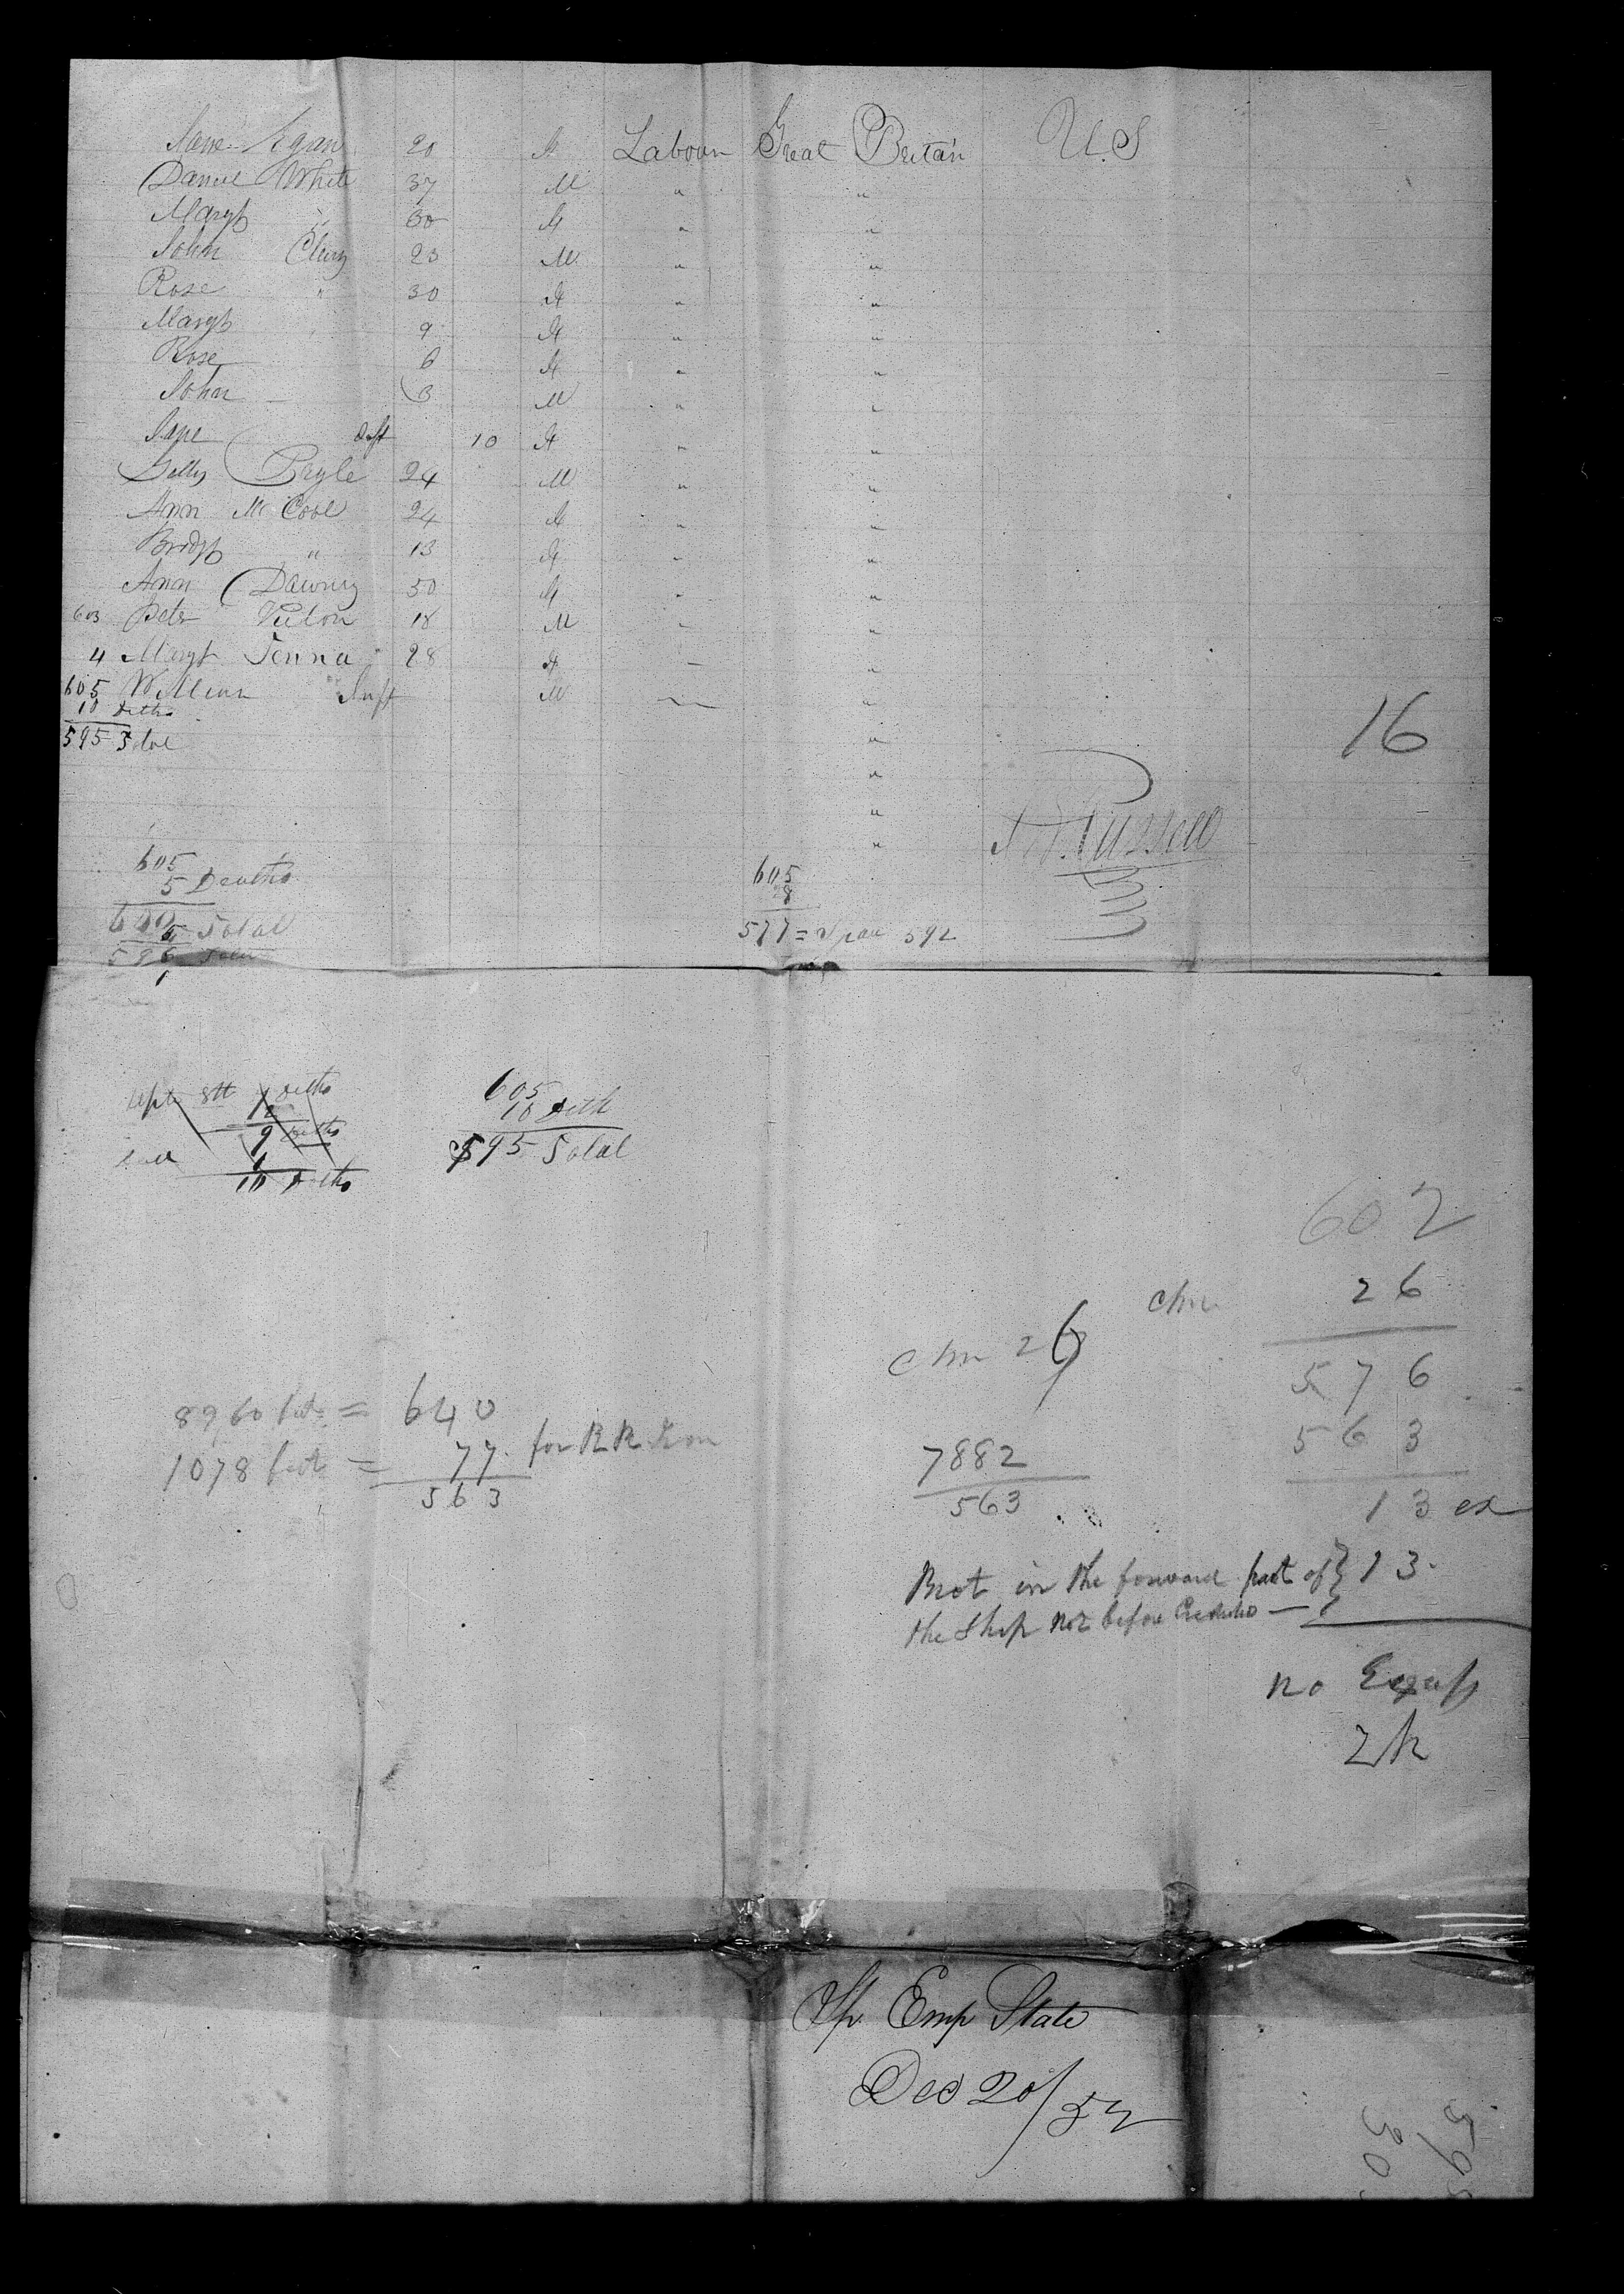 Jane Egan 20 F Labour Great Britain U.S
Daniel White 37 M " "
Margt " 30 F " "
John Clury 23 M " "
Rose " 30 F " "
Margt 9 F " "
Rose 6 F " "
John 3 M " "
Jane Inft 10 F " "
Boyle 24 M " "
Ann McCool 24 F " "
Bridgt " 13 F " "
Ann Dawny 50 F " "
603 Peter 18 M " "
4 Margt Tenna 28 F " "
605 William Inft M " "
10 Deths
595 Total
16
Russell
605
5 Deaths
600 Total
605
28
577 = 592
Sept 8th Deths
9 Deths
1
10 Deths
605
10 Deth
595 Total
602
chn 26
576
563
13 ex
chn 26
8960 feet = 640
1078 feet = 77 for R R Iron
563
7882
563
Brot in the forward part of } 13
the Ship not before
no Excess
Sp. Emp State
Dec 20/52
598
30